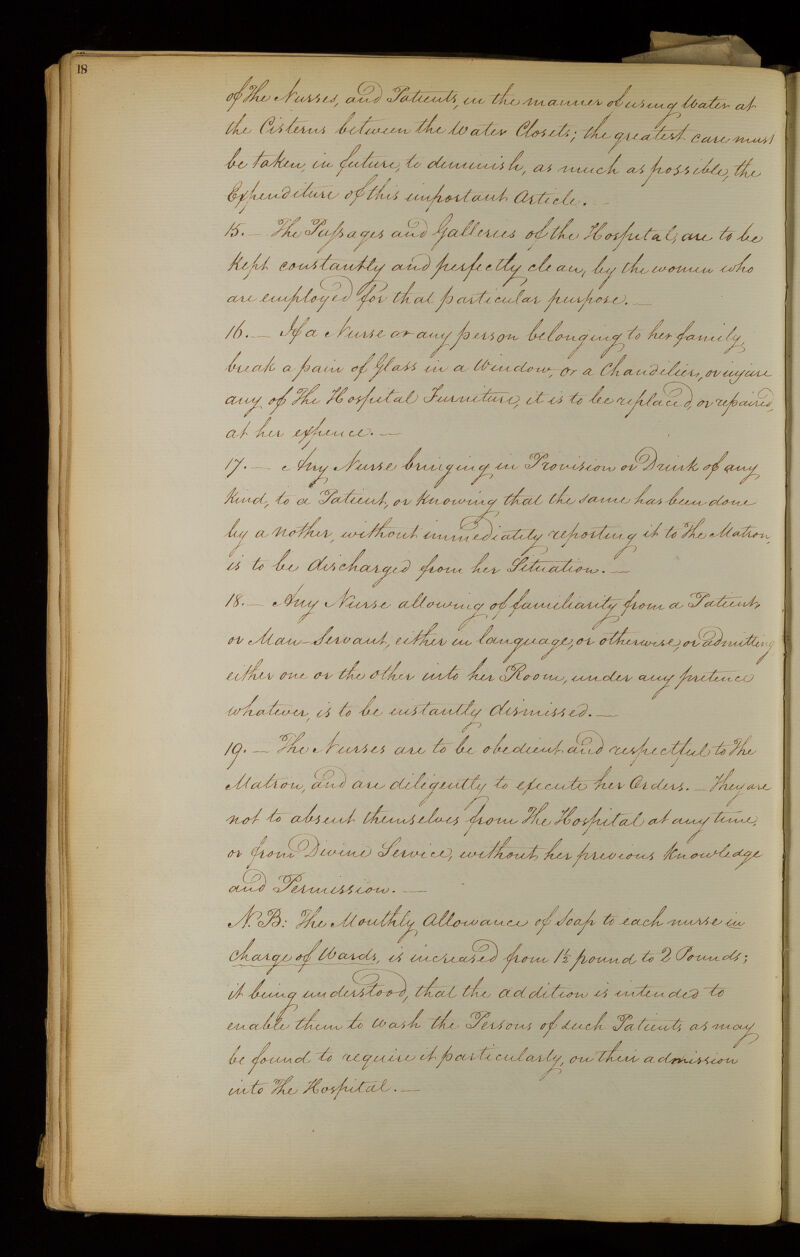 18
of The Nurses, and Patients, in the manner of using Water at
the Cisterns between the Water Closets; the greatest care must
be taken, in future, to diminish, as much as possible, the
Expenditure of this important Article. —
15. — The Passages and Galleries of the Hospital, are to be
kept constantly and perfectly clean, by the women who
are employed for that particular purpose. —
16. — If a Nurse or any person belonging to her family,
break a pain of Glass in a Window, or a Chandilier, or injure
any of The Hospital Furniture, it is to be replaced, or repaired,
at her expence. —
17. — Any Nurse bringing in Provision or Drink of any
kind, to a Patient, or knowing that the same has been done
by another, without immediately reporting it to The Matron,
is to be discharged from her Situation. —
18. — Any Nurse allowing of familiarity from a Patient,
or Man-Servant, either in language, or otherwise, or admitting
either one or the other into her Room, under any pretence
whatever, is to be instantly dismissed. —
19. — The Nurses are to be obedient and respectful to The
Matron, and are diligently to execute her Orders. — They are
not to absent themselves from The Hospital at any time,
or from Divine Service, without her previous knowledge
and Permission. —
N.B: The Monthly Allowance of Soap to each nurse in
charge of Wards, is increased from 1½ pound to 2 Pounds;
it being understood, that the addition is intended to
enable them to wash the Persons of such Patients as may
be found to require it particularly, on their admission
into The Hospital. —